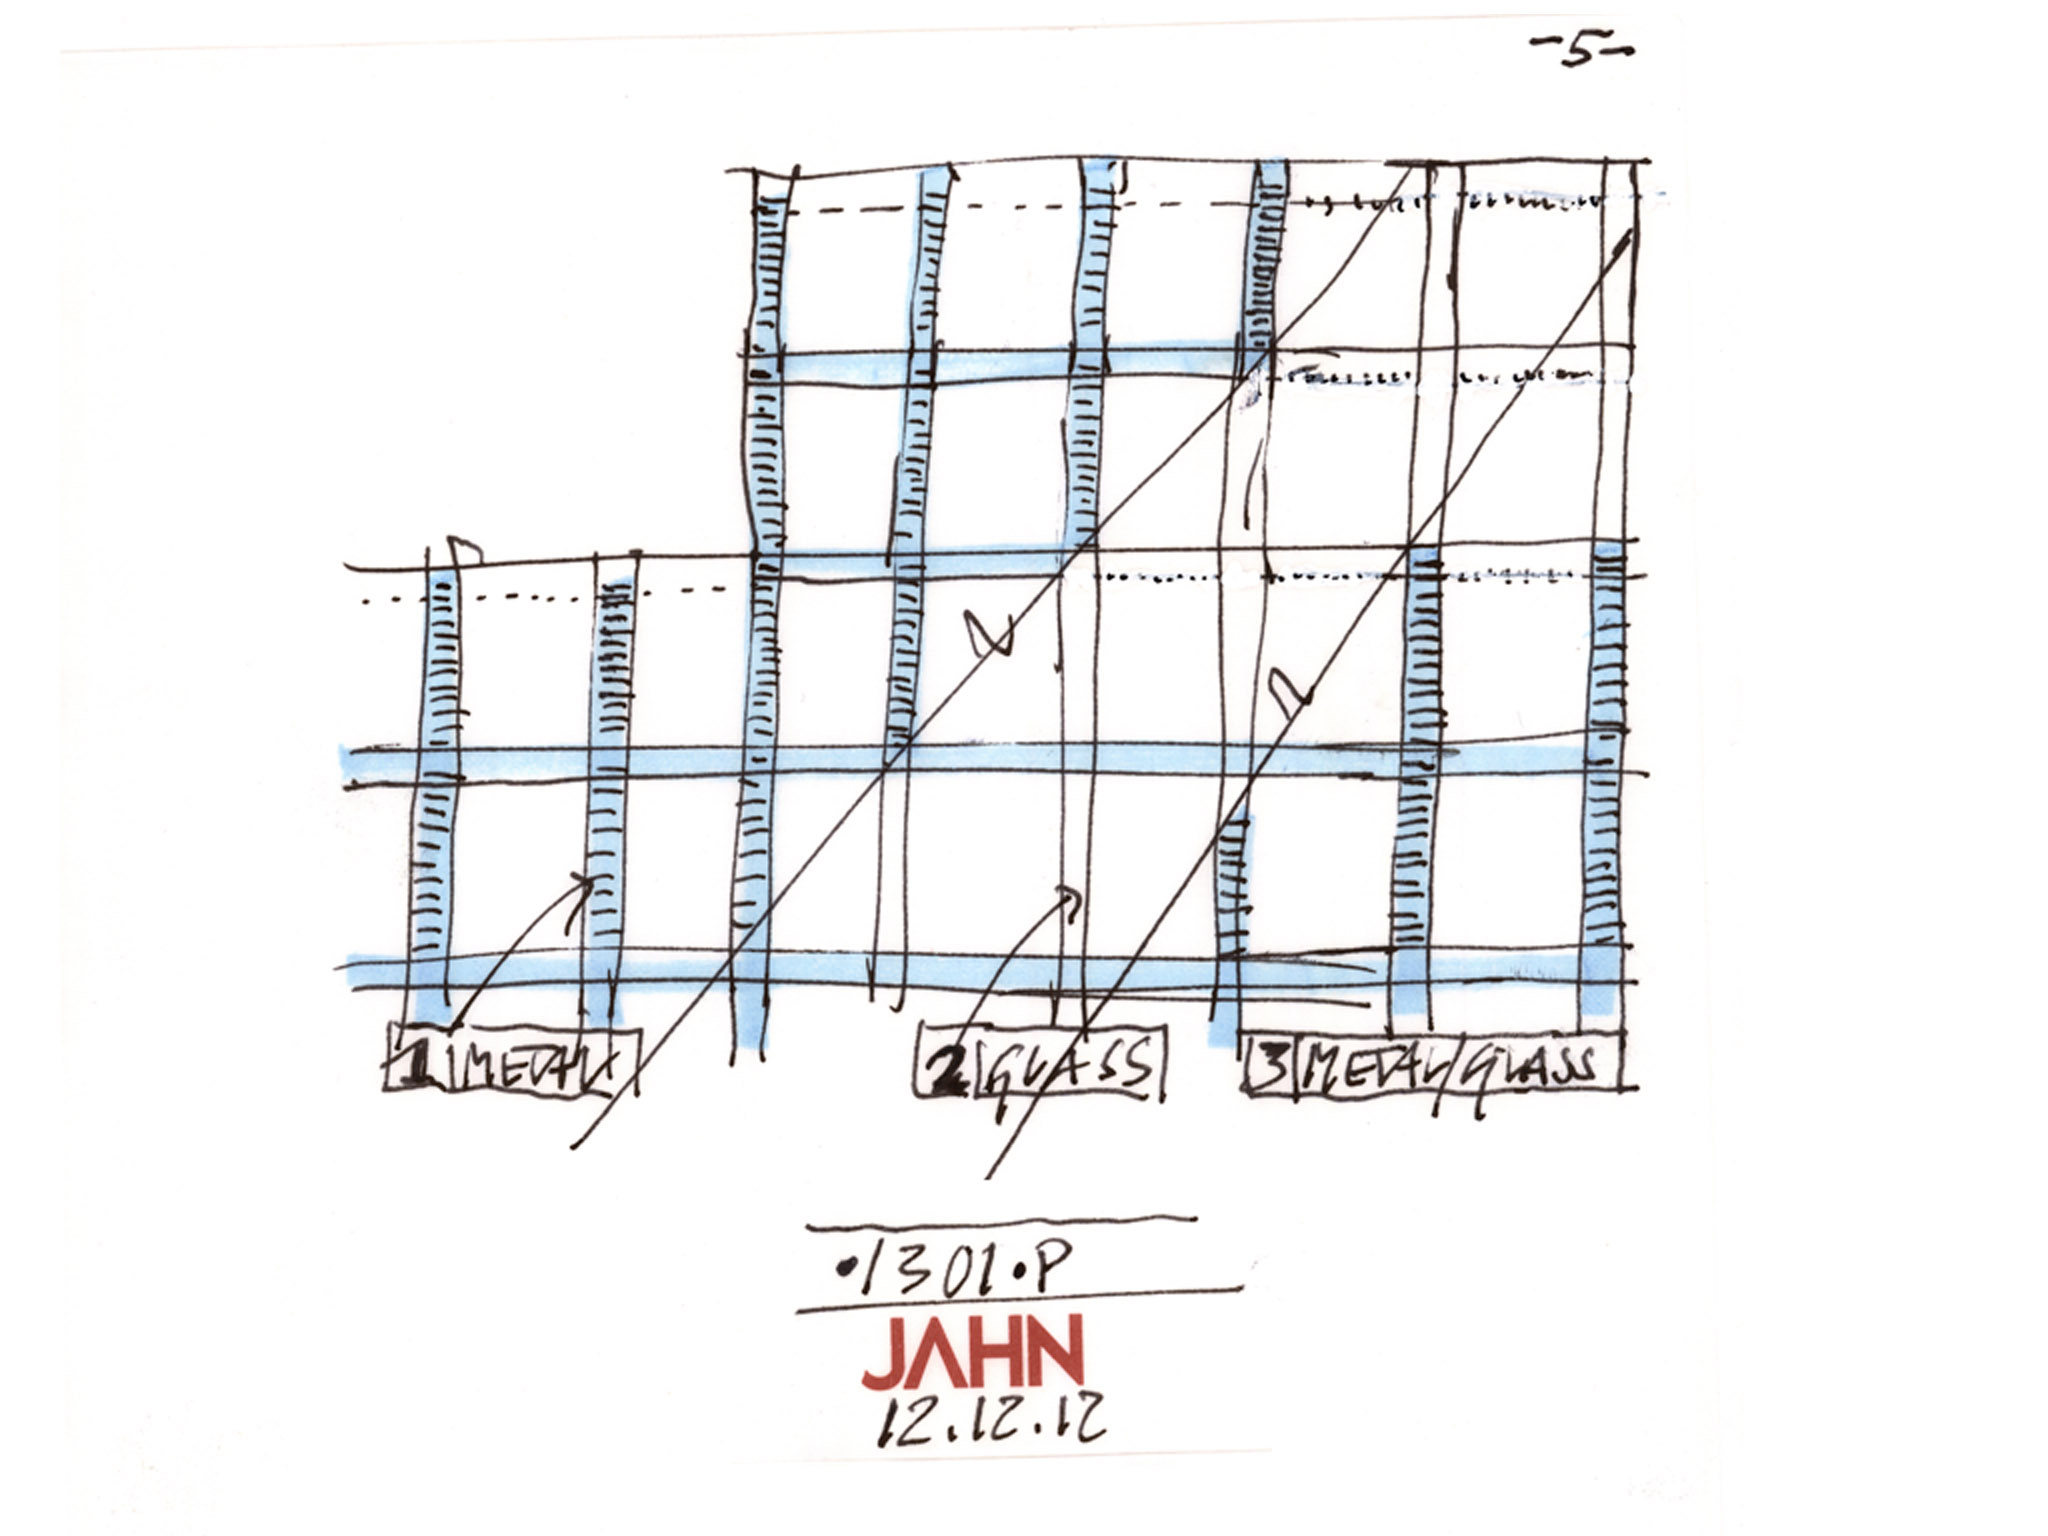 -5-
1 METAL
2 GLASS
3 METAL/GLASS
•1301•P
JAHN
12.12.12